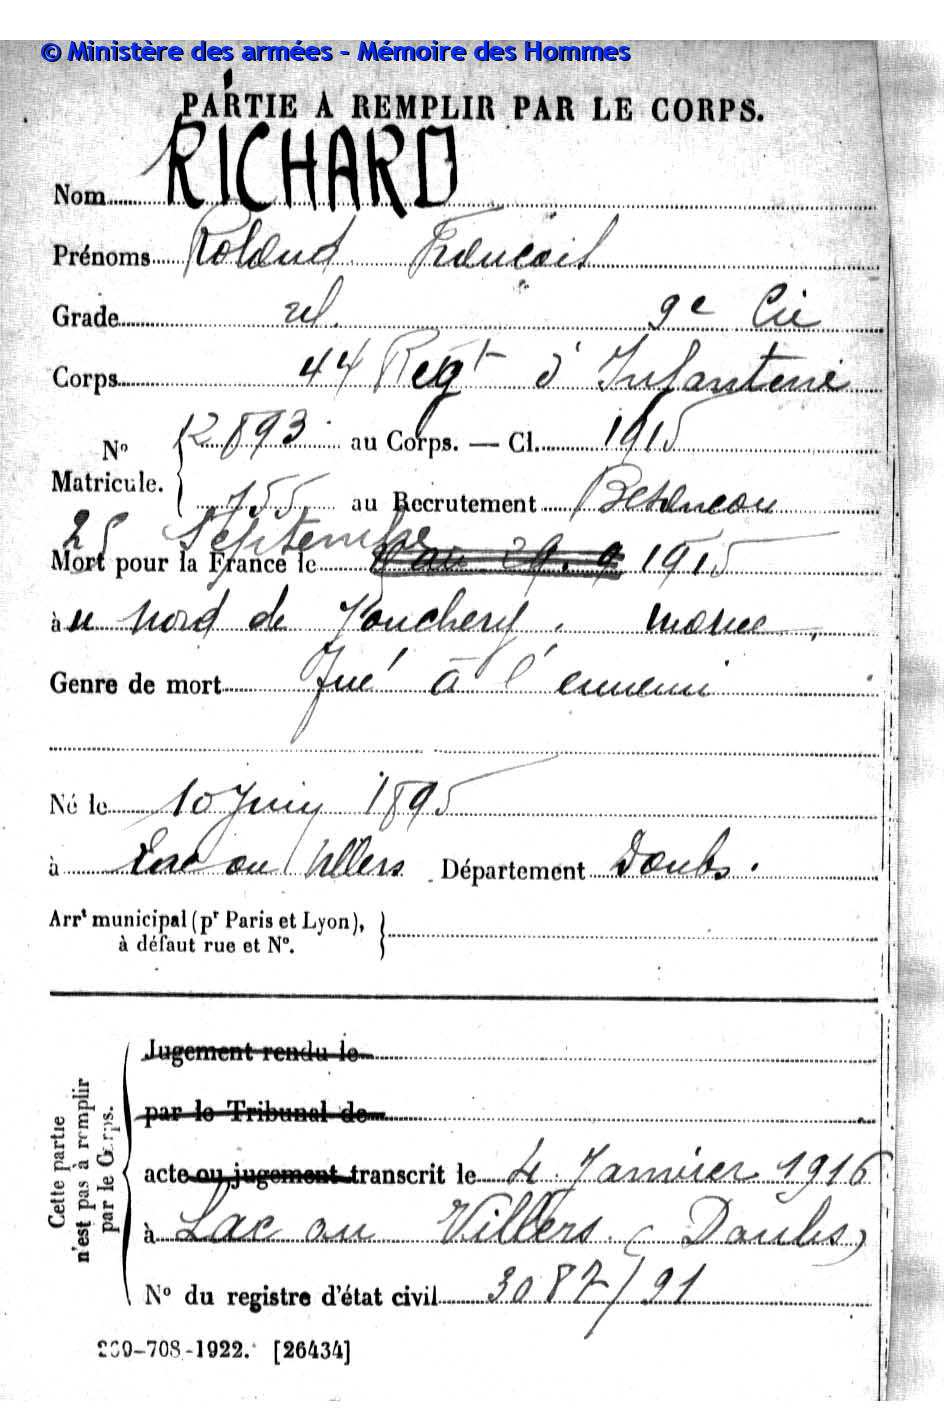 © Ministère des armées - Mémoire des Hommes
PARTIE A REMPLIR PAR LE CORPS.
Nom RICHARD
Prénoms Roland François
Grade 2e cl. 9e Cie
Corps 44 Regt d'Infanterie
No 12893 au Corps. — Cl. 1915
Matricule. 755 au Recrutement Besançon
25 Septembre
Mort pour la France le au 29.9 1915
àu nord de Jonchery. marne
Genre de mort Tué à l'ennemi
Né le 10 Juin 1895
à Lac ou Villers Département Doubs.
Arrt municipal (pr Paris et Lyon),
à défaut rue et No.
Cette partie
n'est pas à remplir
par le Corps.
Jugement rendu le
par le Tribunal de
acte ou jugement transcrit le 4 Janvier 1916
à Lac ou Villers (Doubs)
No du registre d'état civil 3087/91
-708-1922. [26434]